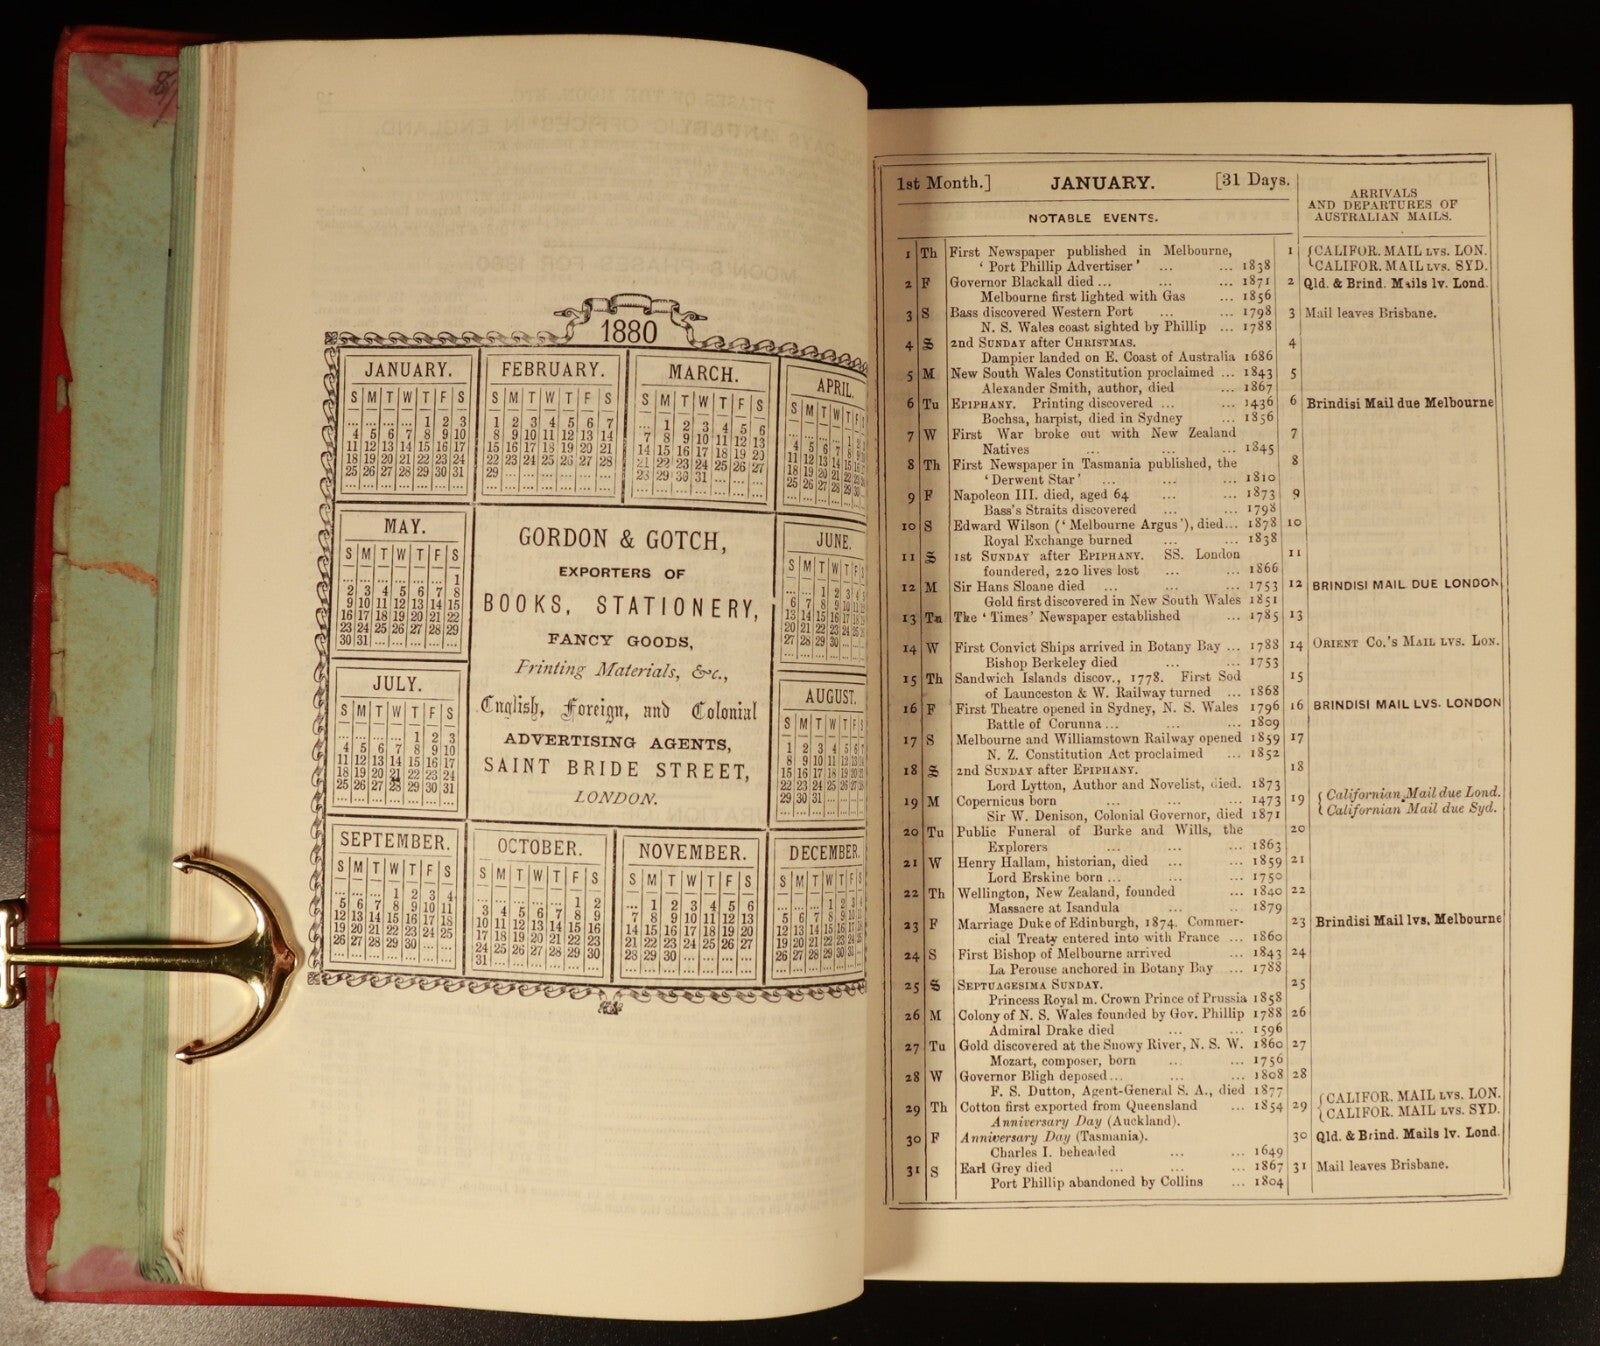 1880
JANUARY.
S M T W T F S
... ... ... ... 1 2 3
4 5 6 7 8 9 10
11 12 13 14 15 16 17
18 19 20 21 22 23 24
25 26 27 28 29 30 31
FEBRUARY.
S M T W T F S
1 2 3 4 5 6 7
8 9 10 11 12 13 14
15 16 17 18 19 20 21
22 23 24 25 26 27 28
29 ... ... ... ... ... ...
MARCH.
S M T W T F S
... 1 2 3 4 5 6
7 8 9 10 11 12 13
14 15 16 17 18 19 20
21 22 23 24 25 26 27
28 29 30 31 ... ... ...
APRIL.
S M T W T F S
4 5 6 7 8
11 12 13 14 15
18 19 20 21 22
25 26 27 28 29
MAY.
S M T W T F S
... ... ... ... ... ... 1
2 3 4 5 6 7 8
9 10 11 12 13 14 15
16 17 18 19 20 21 22
23 24 25 26 27 28 29
30 31 ... ... ... ... ...
GORDON & GOTCH,
EXPORTERS OF
BOOKS, STATIONERY,
FANCY GOODS,
Printing Materials, &c.,
English, Foreign, and Colonial
ADVERTISING AGENTS,
SAINT BRIDE STREET,
LONDON.
JUNE.
S M T W T F S
... ... 1 2 3
6 7 8 9 10 11
13 14 15 16 17 18
20 21 22 23 24 25
27 28 29 30 ... ...
JULY.
S M T W T F S
... ... ... ... 1 2 3
4 5 6 7 8 9 10
11 12 13 14 15 16 17
18 19 20 21 22 23 24
25 26 27 28 29 30 31
AUGUST.
S M T W T F S
1 2 3 4 5 6 7
8 9 10 11 12 13
15 16 17 18 19 20
22 23 24 25 26 27
29 30 31 ... ... ...
SEPTEMBER.
S M T W T F S
... ... ... 1 2 3 4
5 6 7 8 9 10 11
12 13 14 15 16 17 18
19 20 21 22 23 24 25
26 27 28 29 30 ... ...
OCTOBER.
S M T W T F S
... ... ... ... ... 1 2
3 4 5 6 7 8 9
10 11 12 13 14 15 16
17 18 19 20 21 22 23
24 25 26 27 28 29 30
31
NOVEMBER.
S M T W T F S
... 1 2 3 4 5 6
7 8 9 10 11 12 13
14 15 16 17 18 19 20
21 22 23 24 25 26 27
28 29 30 ... ... ... ...
DECEMBER.
S M T W T F S
... ... ... 1 2 3 4
5 6 7 8 9 10
12 13 14 15 16 17
19 20 21 22 23 24
26 27 28 29 30 31
1st Month.] JANUARY. [31 Days.
NOTABLE EVENTS.
ARRIVALS
AND DEPARTURES OF
AUSTRALIAN MAILS.
1 Th First Newspaper published in Melbourne, 1 CALIFOR. MAIL LVS. LON.
'Port Phillip Advertiser' ... ... 1838 CALIFOR. MAIL LVS. SYD.
2 F Governor Blackall died ... ... ... 1871 2 Qld. & Brind. Mails lv. Lond.
Melbourne first lighted with Gas ... 1856
3 S Bass discovered Western Port ... ... 1798 3 Mail leaves Brisbane.
N. S. Wales coast sighted by Phillip ... 1788
4 S 2nd SUNDAY after CHRISTMAS. 4
Dampier landed on E. Coast of Australia 1686
5 M New South Wales Constitution proclaimed ... 1843 5
Alexander Smith, author, died ... 1867
6 Tu EPIPHANY. Printing discovered ... ... 1436 6 Brindisi Mail due Melbourne
Bochsa, harpist, died in Sydney ... 1856
7 W First War broke out with New Zealand 7
Natives ... ... ... 1845
8 Th First Newspaper in Tasmania published, the 8
'Derwent Star' ... ... ... 1810
9 F Napoleon III. died, aged 64 ... ... 1873 9
Bass's Straits discovered ... ... 1798
10 S Edward Wilson ('Melbourne Argus'), died... 1878 10
Royal Exchange burned ... ... 1838
11 S 1st SUNDAY after EPIPHANY. SS. London 11
foundered, 220 lives lost ... ... 1866
12 M Sir Hans Sloane died ... ... ... 1753 12 BRINDISI MAIL DUE LONDON
Gold first discovered in New South Wales 1851
13 Tu The 'Times' Newspaper established ... 1785 13
14 W First Convict Ships arrived in Botany Bay ... 1788 14 ORIENT CO.'S MAIL LVS. LON.
Bishop Berkeley died ... ... 1753
15 Th Sandwich Islands discov., 1778. First Sod 15
of Launceston & W. Railway turned ... 1868
16 F First Theatre opened in Sydney, N. S. Wales 1796 16 BRINDISI MAIL LVS. LONDON
Battle of Corunna ... ... ... 1809
17 S Melbourne and Williamstown Railway opened 1859 17
N. Z. Constitution Act proclaimed ... 1852
18 S 2nd SUNDAY after EPIPHANY. 18
Lord Lytton, Author and Novelist, died. 1873
19 M Copernicus born ... ... ... 1473 19 Californian Mail due Lond.
Sir W. Denison, Colonial Governor, died 1871 Californian Mail due Syd.
20 Tu Public Funeral of Burke and Wills, the 20
Explorers ... ... ... 1863
21 W Henry Hallam, historian, died ... ... 1859 21
Lord Erskine born ... ... ... 1750
22 Th Wellington, New Zealand, founded ... 1840 22
Massacre at Isandula ... ... 1879
23 F Marriage Duke of Edinburgh, 1874. Commer- 23 Brindisi Mail lvs. Melbourne
cial Treaty entered into with France ... 1860
24 S First Bishop of Melbourne arrived ... 1843 24
La Perouse anchored in Botany Bay ... 1788
25 S SEPTUAGESIMA SUNDAY. 25
Princess Royal m. Crown Prince of Prussia 1858
26 M Colony of N. S. Wales founded by Gov. Phillip 1788 26
Admiral Drake died ... ... 1596
27 Tu Gold discovered at the Snowy River, N. S. W. 1860 27
Mozart, composer, born ... ... 1756
28 W Governor Bligh deposed ... ... ... 1808 28
F. S. Dutton, Agent-General S. A., died 1877
29 Th Cotton first exported from Queensland ... 1854 29 CALIFOR. MAIL LVS. LON.
Anniversary Day (Auckland). CALIFOR. MAIL LVS. SYD.
30 F Anniversary Day (Tasmania). 30 Qld. & Brind. Mails lv. Lond.
Charles I. beheaded ... ... 1649
31 S Earl Grey died ... ... ... 1867 31 Mail leaves Brisbane.
Port Phillip abandoned by Collins ... 1804